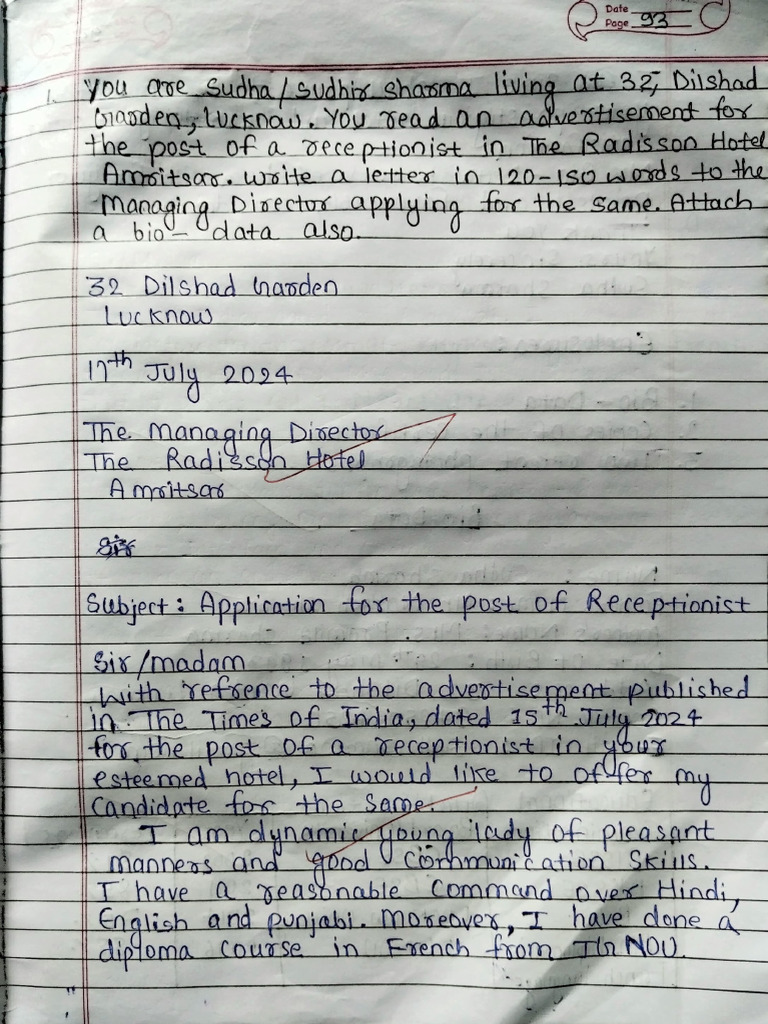 Date
Page 93
1. You are Sudha/Sudhir Sharma living at 32, Dilshad
Garden, Lucknow. You read an advertisement for
the post of a receptionist in The Radisson Hotel
Amritsar. Write a letter in 120-150 words to the
Managing Director applying for the same. Attach
a bio-data also.
32 Dilshad Garden
Lucknow
17th July 2024
The Managing Director
The Radisson Hotel
Amritsar
Sir
Subject: Application for the post of Receptionist
Sir/madam
With refrence to the advertisement published
in The Times of India, dated 15th July 2024
for the post of a receptionist in your
esteemed hotel, I would like to offer my
Candidate for the same.
I am dynamic young lady of pleasant
manners and good communication skills.
I have a reasonable command over Hindi,
English and punjabi. Moreover, I have done a
diploma course in French from IGNOU.